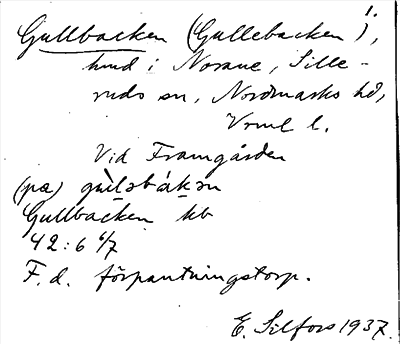 1.
Gullbacken (Gullebacken),
hmd i Norane, Sille-
ruds sn, Nordmarks hd,
Vrml l.
Vid Framgården
(pæ) gùlsbákən
Gullbacken kb
42:6 6/7
F.d. förpantningstorp.
E. Silfors 1937.